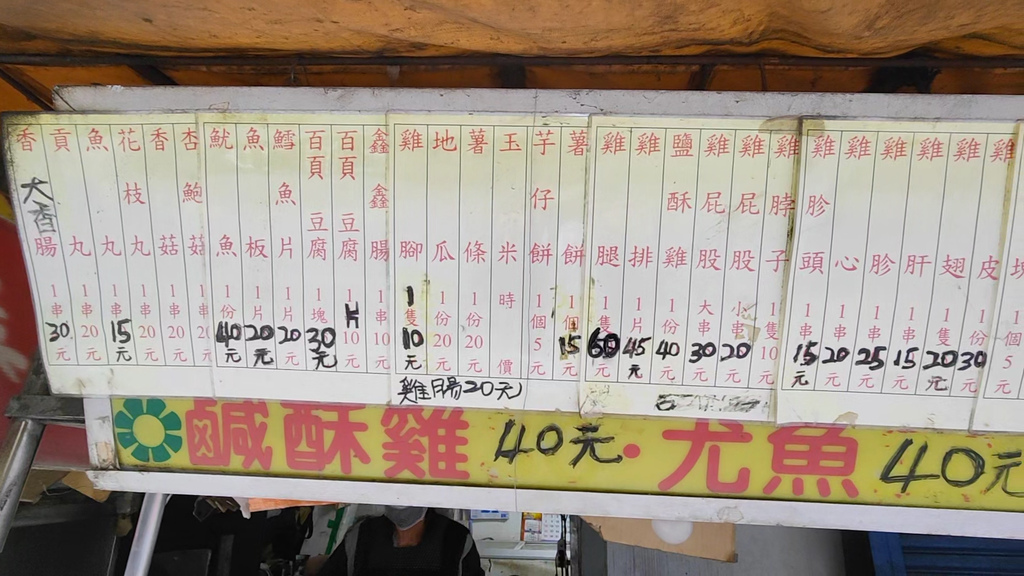 大香腸 1串 30元
貢丸 1串 20元
魚丸 1串 15元
花枝丸 1串 20元
香菇 1串 20元
杏鮑菇 1串
魷魚 1份 40元
魚板 1片 20元
鱈魚片 1片 20元
百頁豆腐 1塊 30元
百頁豆腐 1 10元
鑫鑫腸 1串 10元
雞腳 1隻 10元
地瓜 1份 20元
薯條 1份 20元
玉米 時價
芋仔餅 1個 5元
薯餅 1個 15元
雞腿 1隻 60元
雞排 1片 45元
鹽酥雞 1份 40元
雞屁股 大串 30元
雞屁股 小串 20元
雞脖子 1隻 10元
雞胗頭 1串 15元
雞心 1串 20元
雞胗 1串 25元
雞肝 1串 15元
雞翅 1隻 20元
雞皮 1份 30元
雞塊 1個 5元
雞腸20元
鹹酥雞 40元・尤魚 40元